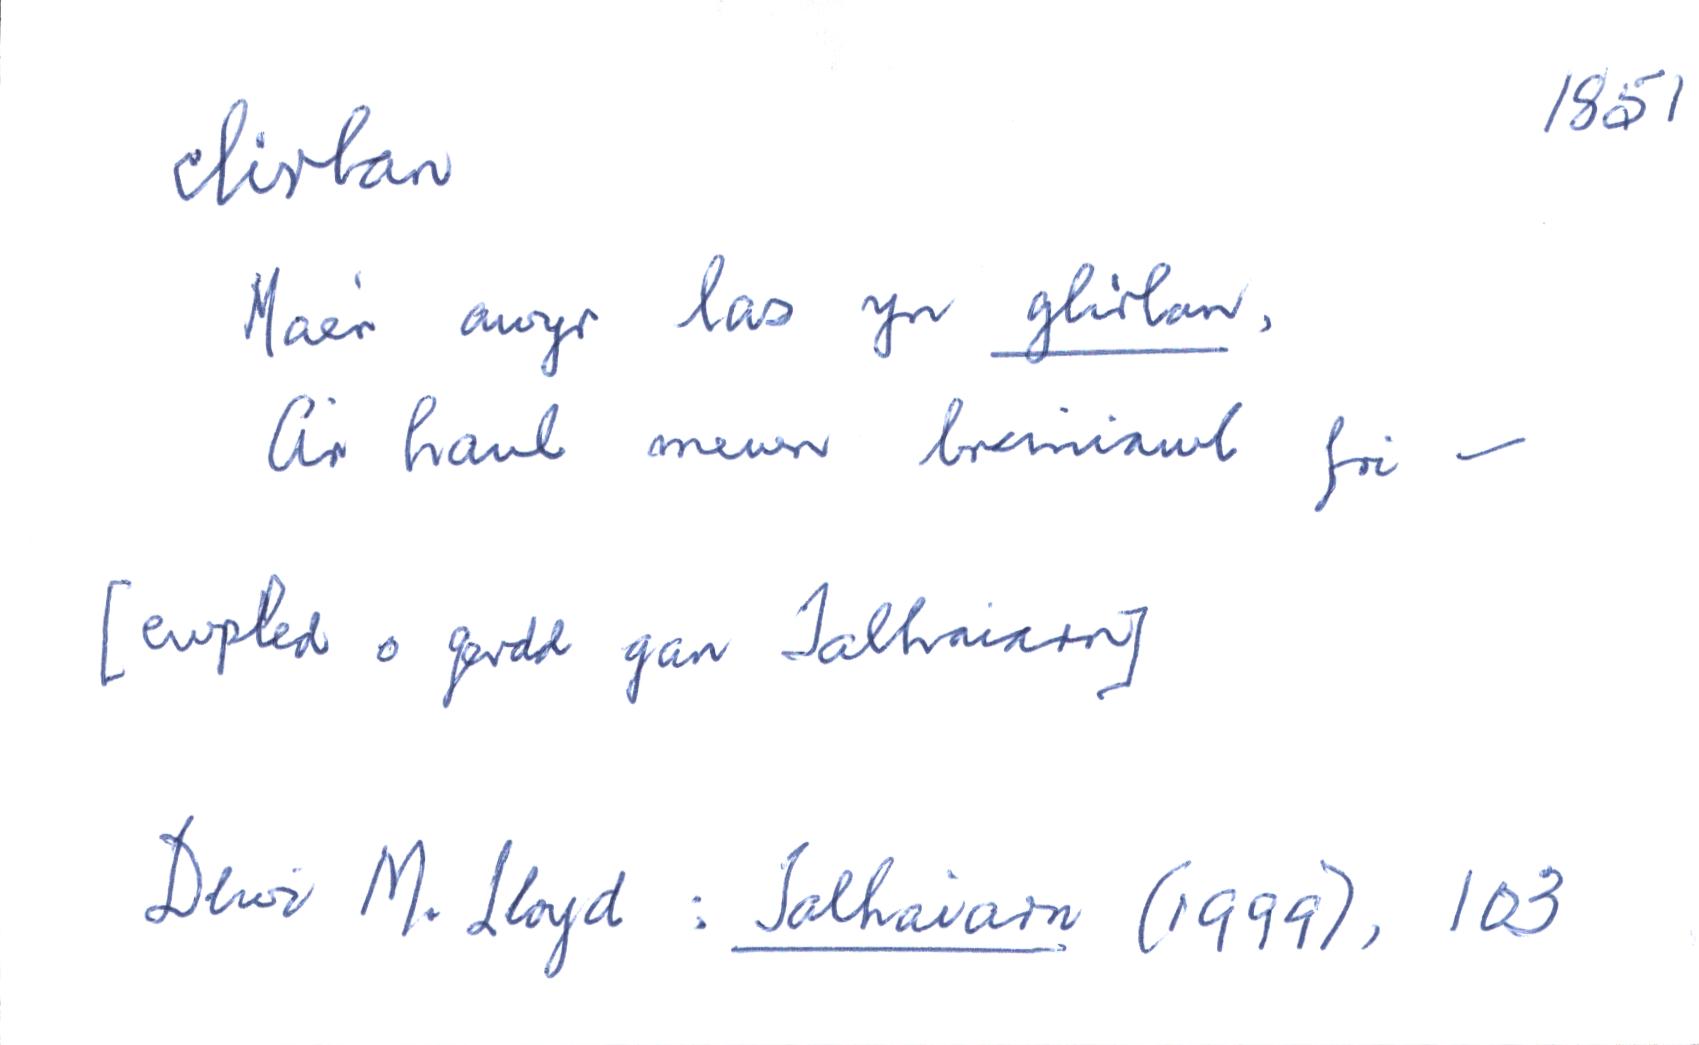 1851
clirlan
Mae'r awyr las yn glirlan,
A'r haul mewn breiniawl fri –
[cwpled o gerdd gan Talhaiarn]
Dewi M. Lloyd : Talhaiarn (1999), 103